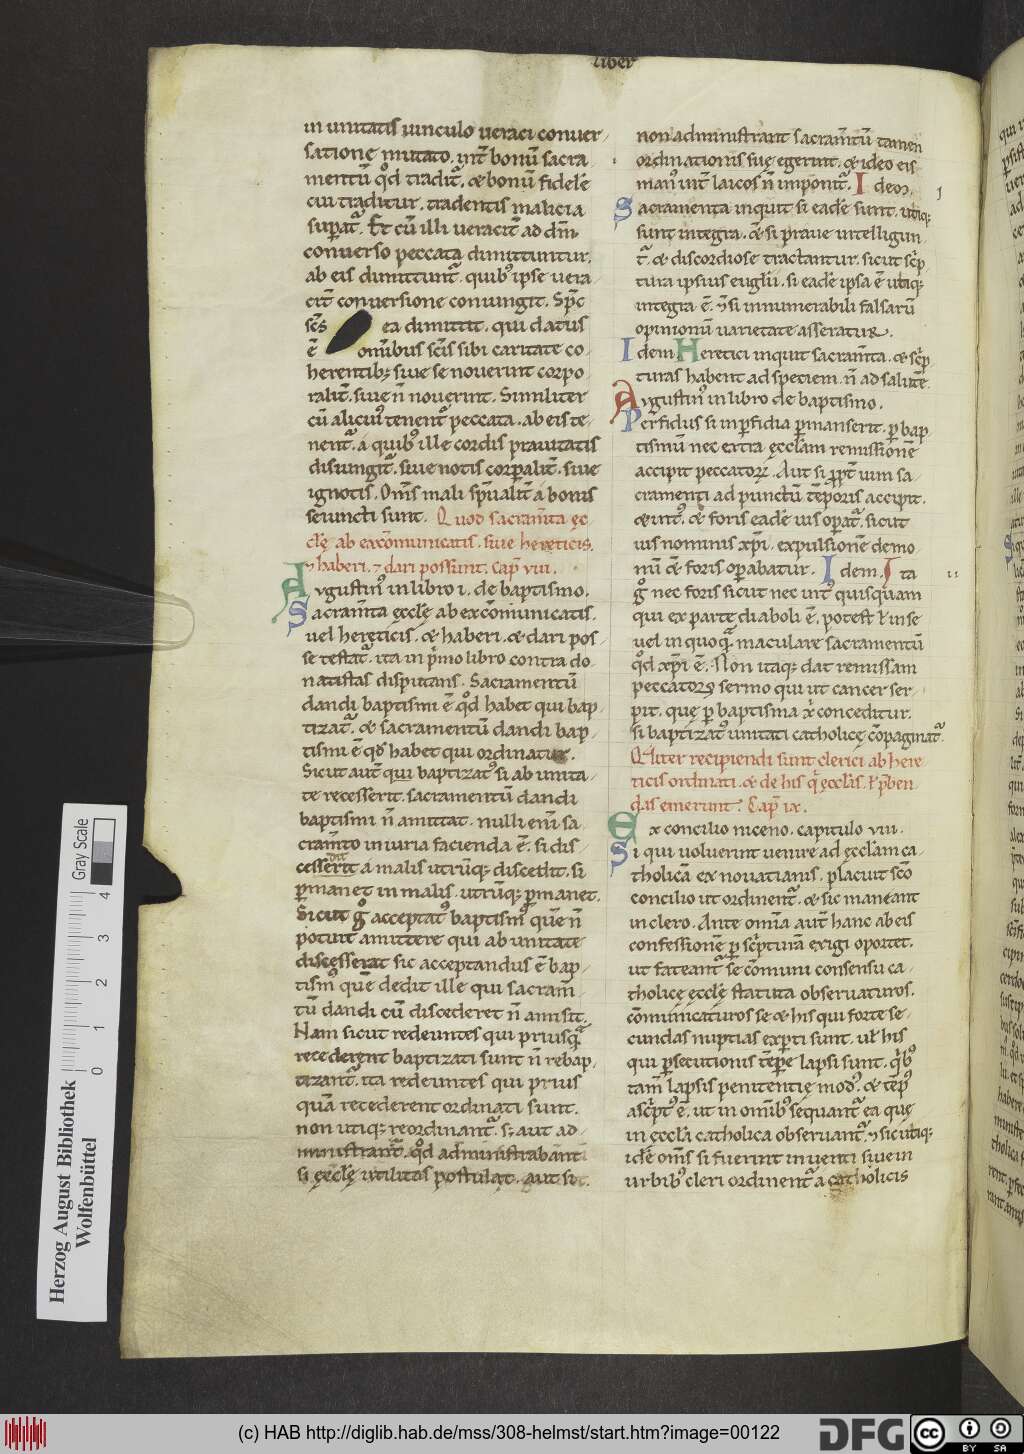 liber
in unitatis uinculo ueraci conuer
satione mutato. int̄ bonū sacra
mentū qd̄ tradit᷑. & bonū fidelē
cui traditur. tradentis malicia
supat᷑. Et cū illi ueracit̄ ad dm̄
conuerso peccata dimittuntur.
ab eis dimittunt᷑. quibꝰ ipse uera
cit̄ conuersione coniungit. Spc̄
scs̄ ea dimittit. qui datus
ē omibus scīs sibi caritate co
herentibꝫ siue se nouerint corpo
ralit̄. siue n̄ nouerint. Similiter
cū alicuiꝰ tenent᷑ peccata. ab eis te
nent᷑. a quibꝰ ille cordis prauitatis
disiungit᷑. siue notis corꝑalit̄. siue
ignotis. Oms̄ mali spūalit̄ a bonis
seiuncti sunt. Quod sacram̄ta ęc
clę̄ ab excōmunicatis. siue hereticis.
⁊ haberi. ⁊ dari possunt. Cap̄ viii.
Avgustinꝰ in libro i. de baptismo.
Sacram̄ta ęcclę̄ ab excōmunicatis.
uel hereticis. & haberi. & dari pos
se testat᷑. ita in p̄mo libro contra do
natistas disputans. Sacramentū
dandi baptismi ē. qd̄ habet qui bap
tizat᷑. & sacramentū dandi bap
tismi ē qd̄ habet qui ordinatur.
Sicut aut̄ qui baptizatꝰ si ab unita
te recesserit. sacramentū dandi
baptismi n̄ amittat. nulli eni sa
cram̄to iniuria facienda ē. si dis
cesserit a malis utrūqꝫ discedit. si
ꝑmanet in malis. utrūqꝫ ꝑmanet.
Sicut g̊ acceptatꝰ baptismꝰ quē n̄
potuit amittere qui ab unitate
discesserat sic acceptandus ē bap
tismꝰ quē dedit ille qui sacram̄
tū dandi cū discederet n̄ amisit.
Nam sicut redeuntes qui priusq̄
recederent baptizati sunt n̄ rebap
tizant᷑. ita redeuntes qui prius
quā recederent ordinati sunt.
non utiqꝫ reordinant᷑. sꝫ aut ad
ministrant᷑. qd̄ administrabant
si ęcclę̄ utilitas postulat. aut si
non administrant sacram̄tū tamen
ordinationis suę egerunt. & ideo eis
manꝰ int̄ laicos n̄ imponit᷑. Idem.
Sacramenta inquit si eadē sunt. utiqꝫ
sunt integra. & si praue intelligun
t᷑. & discordiose tractantur. sicut scp̄
tura ipsius euglii. si eadē ipsa ē utiqꝫ
integra ē. ⁊ si innumerabili falsarū
opinionū uarietate asseratur.
Idem Heretici inquit sacram̄ta. & scp̄
turas habent ad speciem. n̄ ad salutē.
Avgustinꝰ in libro de baptismo.
Perfidus si in perfidia ꝑmanserit. ꝑ bap
tismū nec extra ęcclam remissionē
accipit peccatoꝝ. Aut si ꝓpt̄ uim sa
cramenti ad punctū tēporis accipit.
& intꝰ. & foris eadē uis opat᷑. sicut
uis nominis xp̄i. expulsionē demo
nū & foris opabatur. Idem. Ita
g̊ nec foris sicut nec intꝰ quisquam
qui ex parte diaboli ē. potest ł in se
uel in quoq̄ maculare sacramentū
qd̄ xp̄i ē. Non itaqꝫ dat remissam
peccatoꝝ sermo qui ut cancer ser
pit. quę ꝑ baptisma x̄ conceditur.
si baptizatꝰ unitati catholicę cōpaginat᷑.
Qualiter recipiendi sunt clerici ab here
ticis ordinati. & de his qi ęcclas. ł p̄ben
das emerunt. Cap̄ ix.
Ex concilio niceno. capitulo viii.
Si qui uoluerint uenire ad ęcclam ca
tholicā ex nouatianis. placuit scō
concilio ut ordinent᷑. & sic maneant
in clero. Ante omīa aut̄ hanc ab eis
confessionē ꝑ scripturā exigi oportet.
ut fateant᷑ se cōmuni consensu ca
tholicę ęcclę̄ statuta obseruaturos.
cōmunicaturos se & his qui forte se
cundas nuptias expti sunt. uł his
qui ꝑsecutionis tēpe lapsi sunt. qibꝰ
tam̄ lapsis penitentię modꝰ. & tēpꝰ
ascptꝰ ē. ut in omibꝰ sequant᷑ ea quę
in ęccla catholica obseruant᷑. ⁊ sic utiqꝫ
idē oms̄ si fuerint inuenti siue in
urbibꝰ cleri ordinent᷑ a catholicis
Herzog August Bibliothek
Wolfenbüttel
Gray Scale
0 1 2 3 4
(c) HAB http://diglib.hab.de/mss/308-helmst/start.htm?image=00122
DFG
cc BY SA